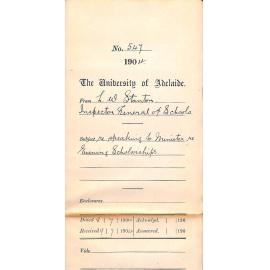 No. 547
1904
The University of Adelaide.
From L W Stanton
Inspector General of Schools
Subject, re speaking to Minister re
Evening Scholarships
Enclosures
Dated 8 | 7 | 1904 Acknlgd. | | 190
Received 9 | 7 | 1904 Answered. | | 190
Vide